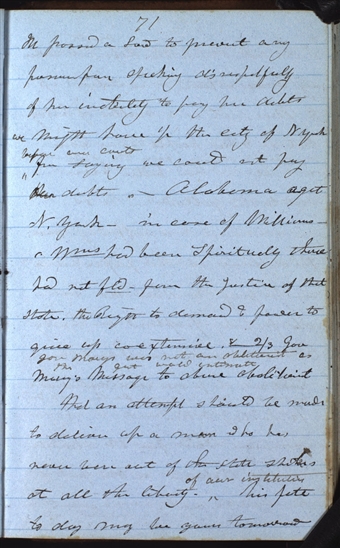 71
passed a Law to prevent any
person from speaking disrespectfully
of her inability to pay her debts
we might have in the city of N. York
before our courts
for saying we could not pay
our debts " — Alabama agst
N. York — in case of Williams —
a Wms had been Spiritually there
had not fled from the Justice of that
State. the Right to demand & power to
give up co-extensive. & 2/3 Gov
Gov Marcy was not an abolitionist as
the
Marcy's Message to abuse abolitionist
that an attempt should be made
to deliver up a man who has
never been out of the State strikes
of our institutions
at all the liberty. " his fate
to day may be yours tomorrow